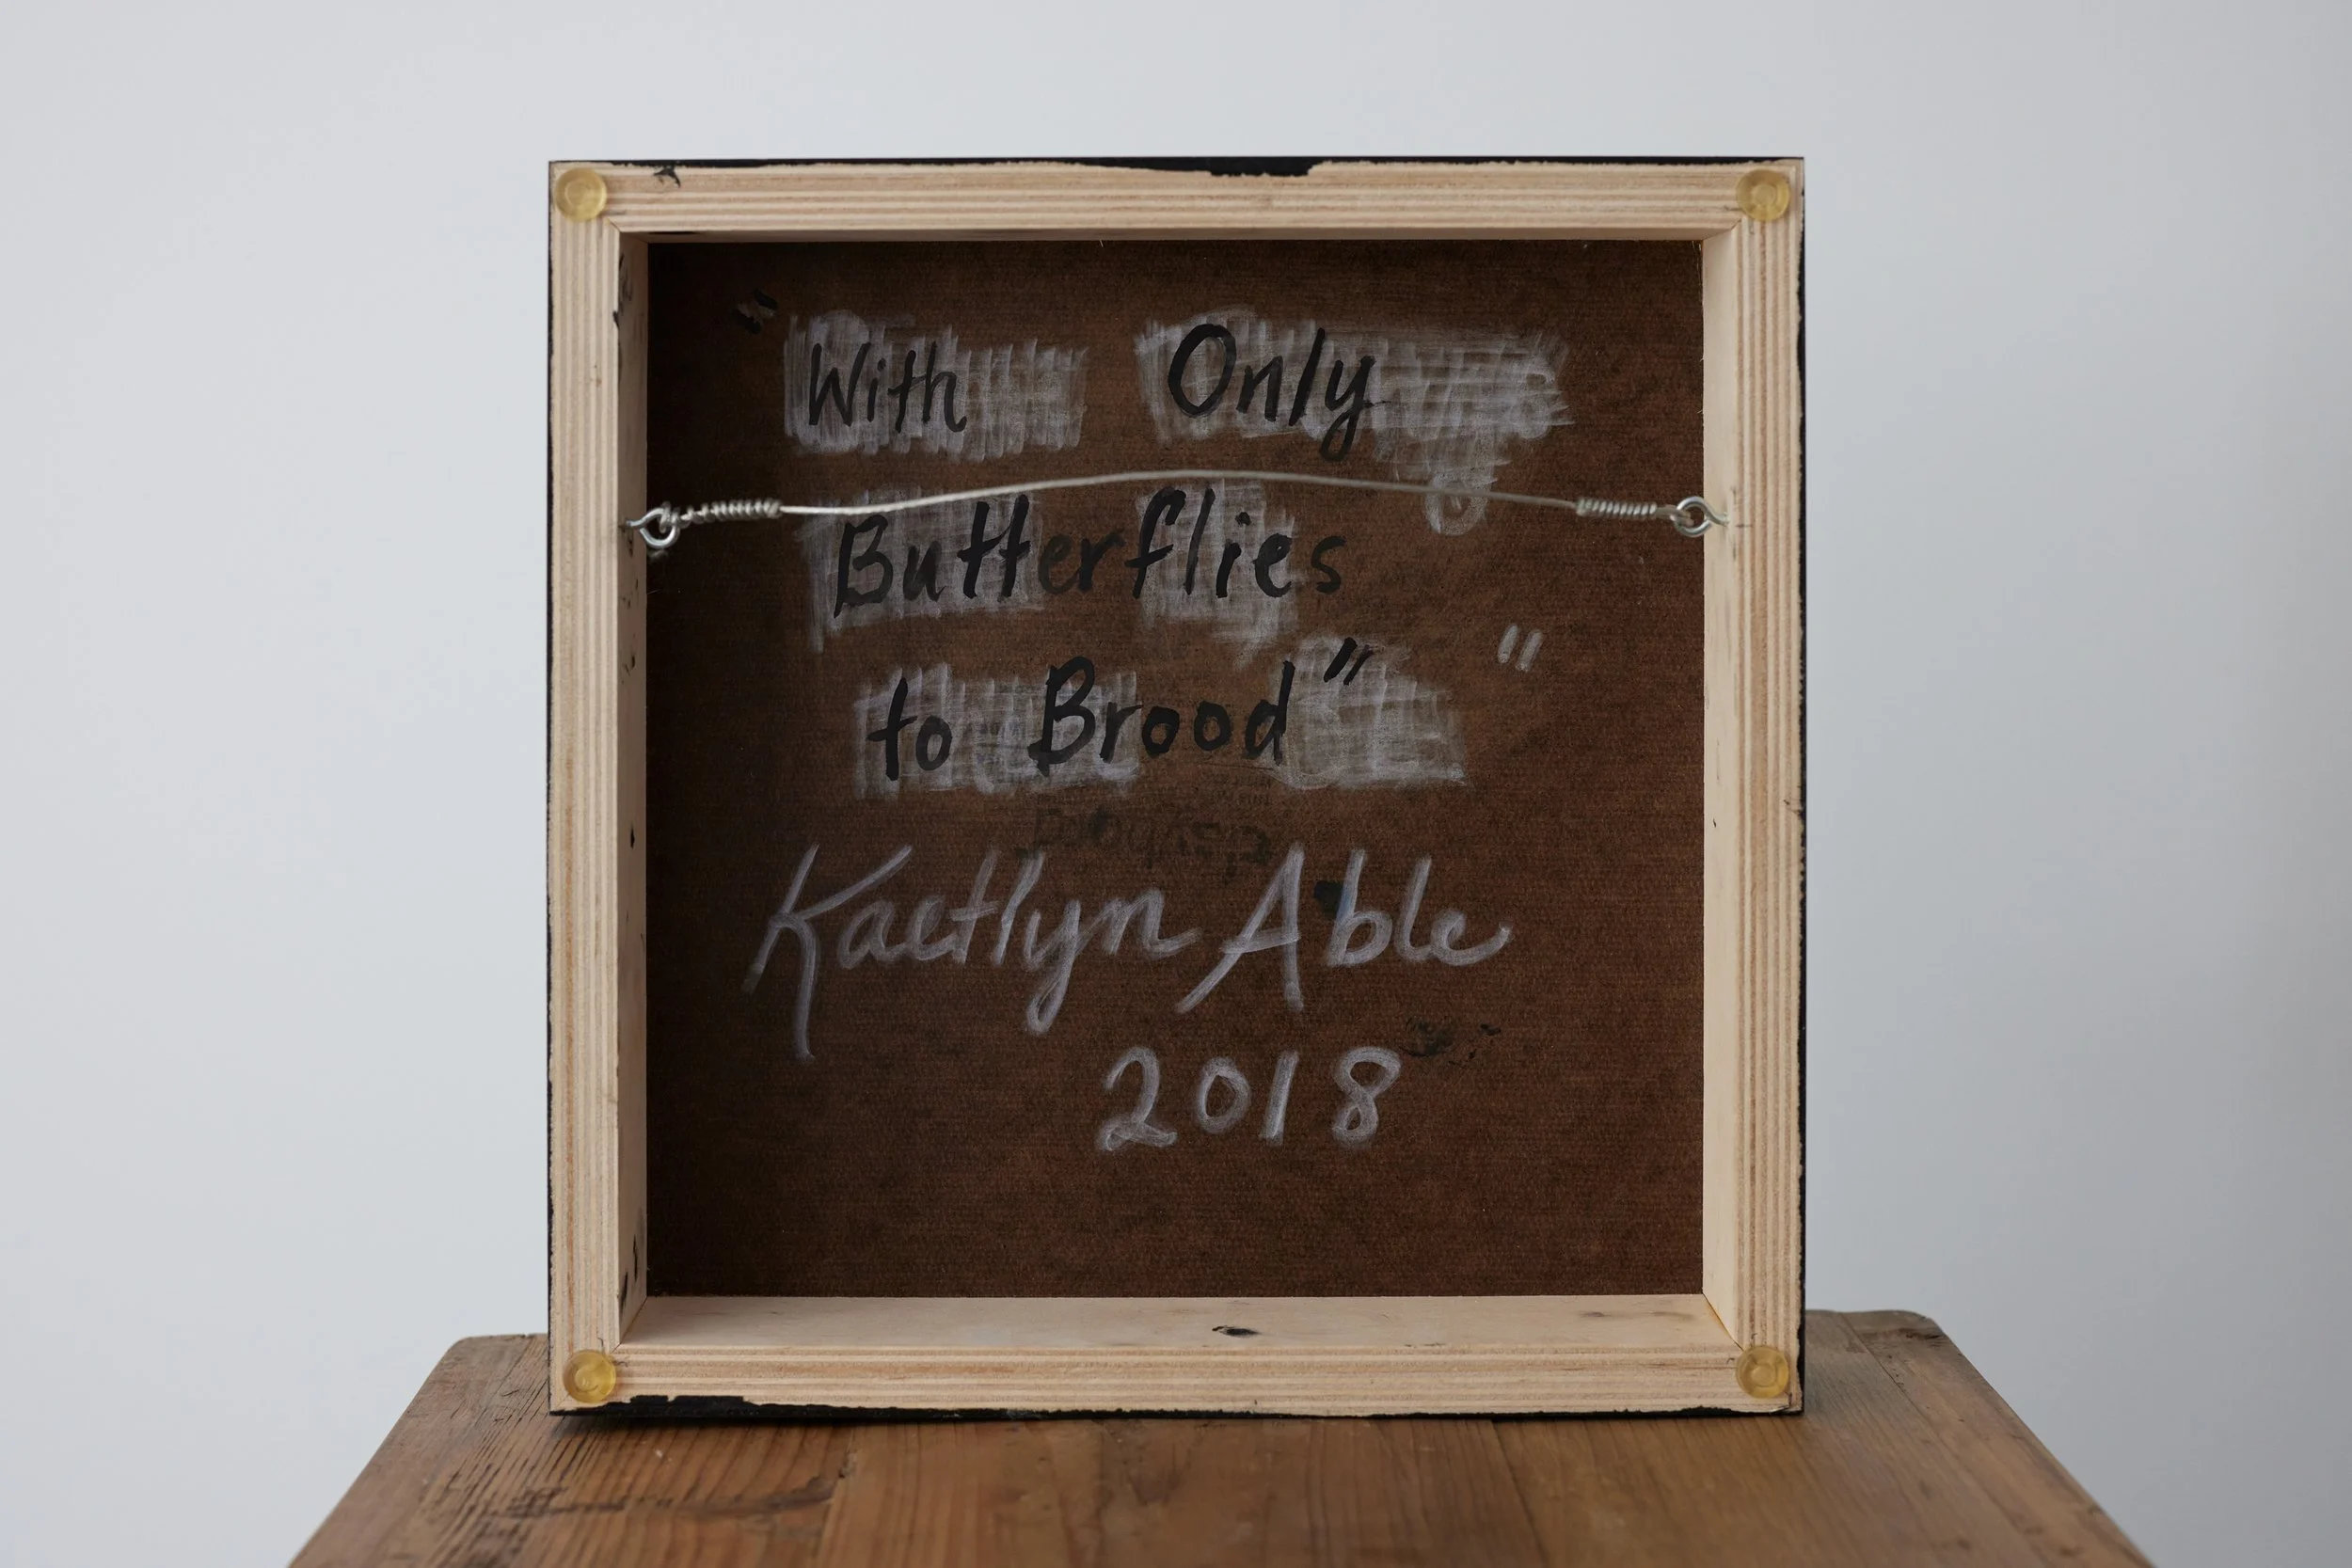 "With Only
Butterflies
to Brood" "
Kaetlyn Able
2018